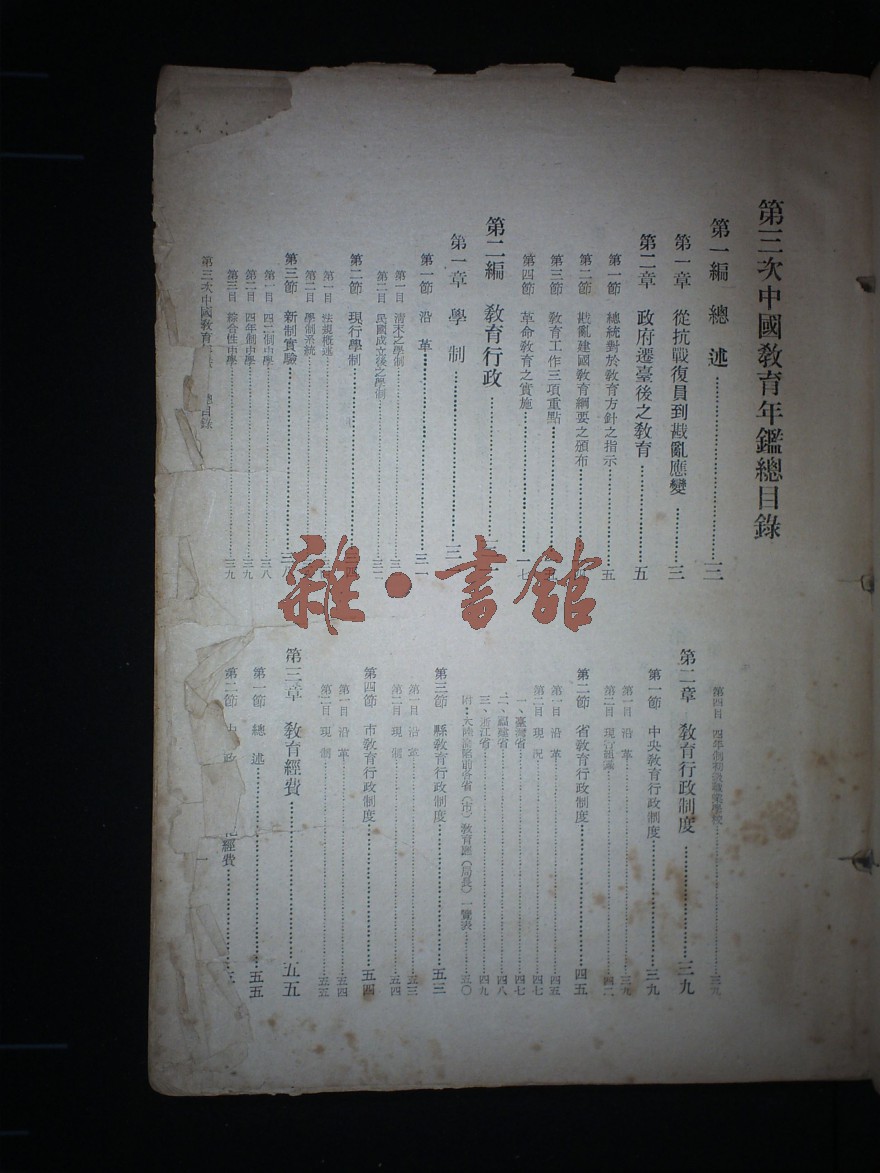 第三次中國教育年鑑總目錄
第一編 總 述……三
第一章 從抗戰復員到戡亂應變……三
第二章 政府遷臺後之教育……五
第一節 總統對於教育方針之指示……五
第二節 戡亂建國教育綱要之頒布
第三節 教育工作三項重點
第四節 革命教育之實施……一七
第二編 教育行政
第一章 學 制……三
第一節 沿 革……三一
第一目 清末之學制……三
第二目 民國成立後之學制……三
第二節 現行學制
第一目 法規概述
第二目 學制系統
第三節 新制實驗……三八
第一目 四二制中學……三八
第二目 四年制中學……三九
第三目 綜合性中學……三九
第四目 四年制初級職業學校……三九
第二章 教育行政制度……三九
第一節 中央教育行政制度……三九
第一目 沿 革……三九
第二目 現行組織……四二
第二節 省教育行政制度……四五
第一目 沿 革……四五
第二目 現 況……四七
一、臺灣省……四七
二、福建省……四八
三、浙江省……四九
附:大陸淪陷前各省(市)教育廳(局長)一覽表……五〇
第三節 縣教育行政制度……五三
第一目 沿 革……五三
第二目 現 制……五四
第四節 市教育行政制度……五四
第一目 沿 革……五四
第二目 現 制……五五
第三章 教育經費……五五
第一節 總 述……五五
第二節 中 政 經費
第三次中國教育 總目錄
一
雜·書館